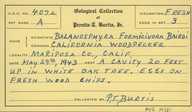 Oological Collection
of
Prentis T. Burtis, Jr.
A.O.U. NO. 407a
SET NO. A
Fresh
EGGS 3
NAME Balanosphyra Formicivora Bairdi
California Woodpecker
Mariposa Co., Calif.
DATE May 29th, 1943 NEST A cavity 20 feet
up in white oak tree. Eggs on
fresh wood chips.
P.T. Burtis